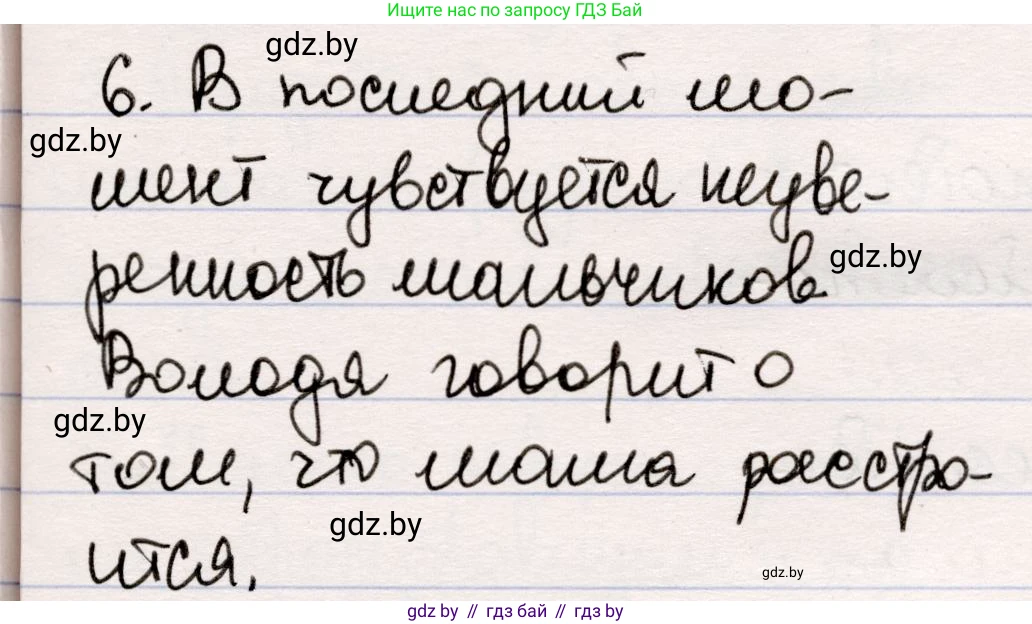 Ищите нас по запросу ГДЗ Бай
gdz.by
6. В последний мо-
gdz.by
мент чувствуется неуве-
ренность мальчиков
gdz.by
Володя говорит о
gdz.by
том, что мама расстро-
gdz.by
ится.
gdz.by
gdz by // гдз бай // гдз by